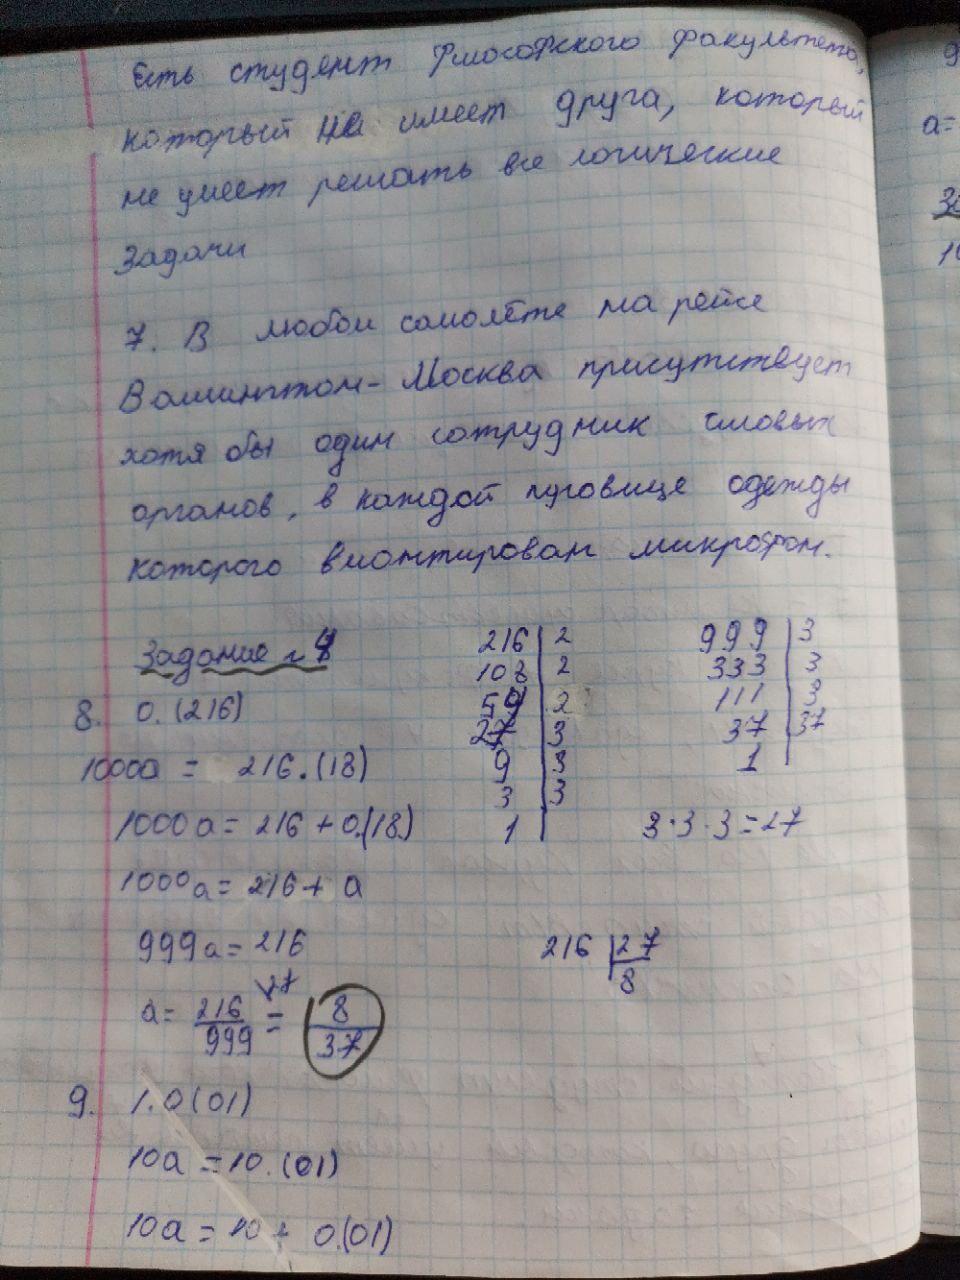 Есть студент философского факультета,
который не имеет друга, который
не умеет решать все логические
задачи
7. В любом самолёте на рейсе
Вашингтон-Москва присутствует
хотя бы один сотрудник силовых
органов, в каждой пуговице одежды
которого вмонтирован микрофон.
Задание №4
8. 0.(216)
1000a = 216.(18)
1000a = 216 + 0.(18)
1000a = 216 + a
999a = 216
a = 216/999 = 8/37
27
216 | 2
108 | 2
54 | 2
27 | 3
9 | 3
3 | 3
1
999 | 3
333 | 3
111 | 3
37 | 37
1
3·3·3=27
216 | 27
8
9. 1.0(01)
10a = 10.(01)
10a = 10 + 0.(01)
9
a=